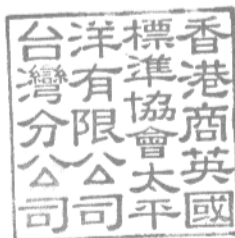 香港商英國
標準協會太平
洋有限公司
台灣分公司